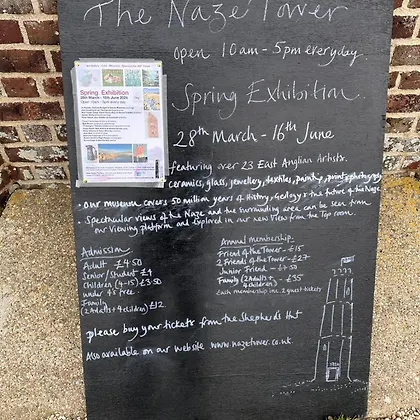 The Naze Tower
open 10am - 5pm everyday.
Spring Exhibition
28th March - 16th June
featuring over 23 East Anglian Artists.
ceramics, glass, jewellery, textiles, painting, prints, photography
• Our museum covers 50 million years of History, Geology & the future of the Naze
Spectacular views of the Naze and the surrounding area can be seen from
our viewing platform and explored in our new View from the Top room.
Spring Exhibition
Admission
Adult £4.50
Senior/Student £4
Children (4-15) £3.50
under 4's free
Family
(2 Adults + 4 children) £12
Annual Membership
Friend of the Tower - £15
2 Friends of the Tower - £27
Junior Friend - £7.50
Family (2 Adults + 4 children) - £35
Each membership inc 2 guest tickets
please buy your tickets from the Shepherds Hut
Also available on our website www.nazetower.co.uk